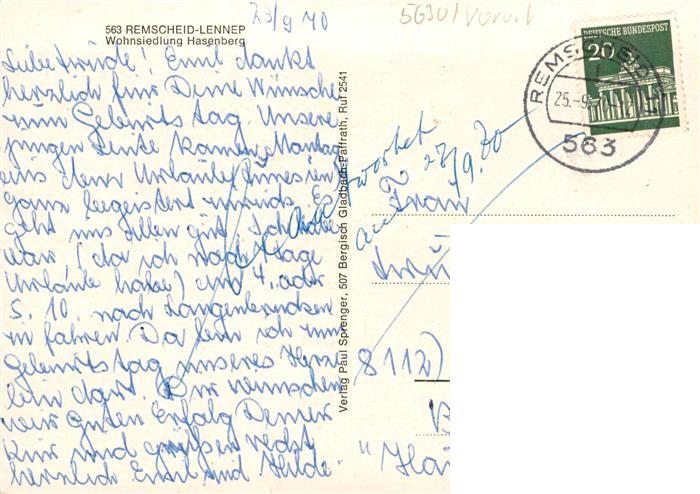 23/9 70
563 REMSCHEID-LENNEP
Wohnsiedlung Hasenberg
Liebe Trude! Emil dankt
herzlich für Deine Wünsche
zum Geburtstag. Unsere
jungen Leute kamen Montag
aus dem Urlaub
ganz begeistert zurück. Es
geht uns allen gut. Ich habe
vor (da ich noch Tage
Urlaub habe) am 4. oder
5. 10. nach Langenbrücken
zu fahren. Da bin ich zum
Geburtstag unseres
dort. Wir wünschen
weiter guten Erfolg Deiner
Kur und grüßen recht
herzlich Emil und Hilde.
Verlag Paul Sprenger, 507 Bergisch Gladbach-Paffrath, Ruf 2541
DEUTSCHE BUNDESPOST
20
REMSCHEID
25.-9.
563
beantwortet
27/9.70
Frau
8112)